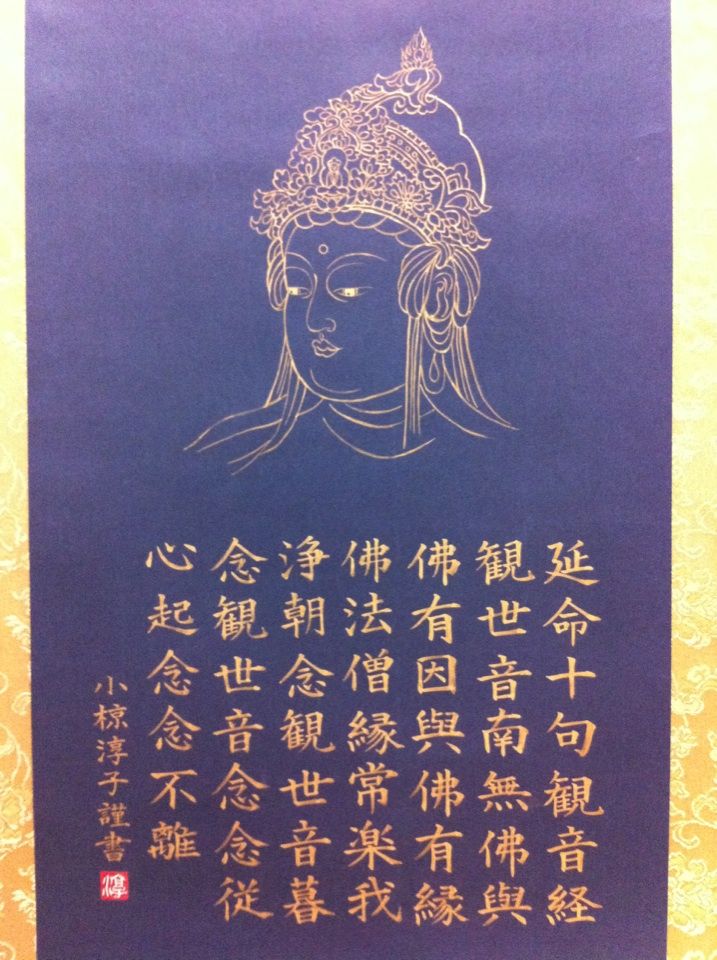 延命十句観音経
観世音南無佛與
佛有因與佛有縁
佛法僧縁常楽我
浄朝念観世音暮
念観世音念念従
心起念念不離
小椋淳子謹書
淳